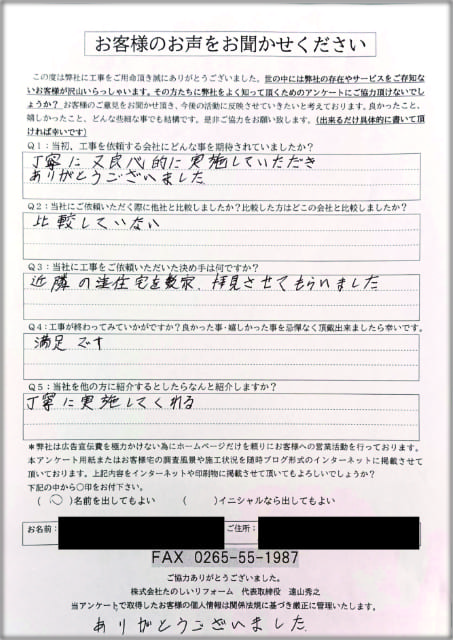 お客様のお声をお聞かせください
この度は弊社に工事をご用命頂き誠にありがとうございました。世の中には弊社の存在やサービスをご存知ない
お客様が沢山いらっしゃいます。その方たちに弊社をよく知って頂くためのアンケートにご協力頂けないでし
ょうか？ お客様のご意見をお聞かせ頂き、今後の活動に反映させていきたいと考えております。良かったこと、
嬉しかったこと、どんな些細な事でも結構です。是非ご協力をお願い致します。(出来るだけ具体的に書いて頂
ければ幸いです)
Q1：当初、工事を依頼する会社にどんな事を期待されていましたか？
丁寧に又良心的に実施していただき
ありがとうございました
Q2：当社にご依頼いただく際に他社と比較しましたか？比較した方はどこの会社と比較しましたか？
比較していない
Q3：当社に工事をご依頼いただいた決め手は何ですか？
近隣の塗住宅を数家、拝見させてもらいました
Q4：工事が終わってみていかがですか？良かった事・嬉しかった事を忌憚なく頂戴出来ましたら幸いです。
満足です
Q5：当社を他の方に紹介するとしたらなんと紹介しますか？
丁寧に実施してくれる
＊弊社は広告宣伝費を極力かけない為にホームページだけを頼りにお客様への営業活動を行っております。
本アンケート用紙またはお客様宅の調査風景や施工状況を随時ブログ形式のインターネットに掲載させて
頂いております。上記内容をインターネットや印刷物に掲載させて頂いてもよろしいでしょうか？
下記の中から〇印をお付下さい。
(〇)名前を出してもよい ( )イニシャルなら出してもよい
お名前： ご住所：
FAX 0265-55-1987
ご協力ありがとうございました。
株式会社たのしいリフォーム 代表取締役 遠山秀之
当アンケートで取得したお客様の個人情報は関係法規に基づき厳正に管理いたします。
ありがとうございました